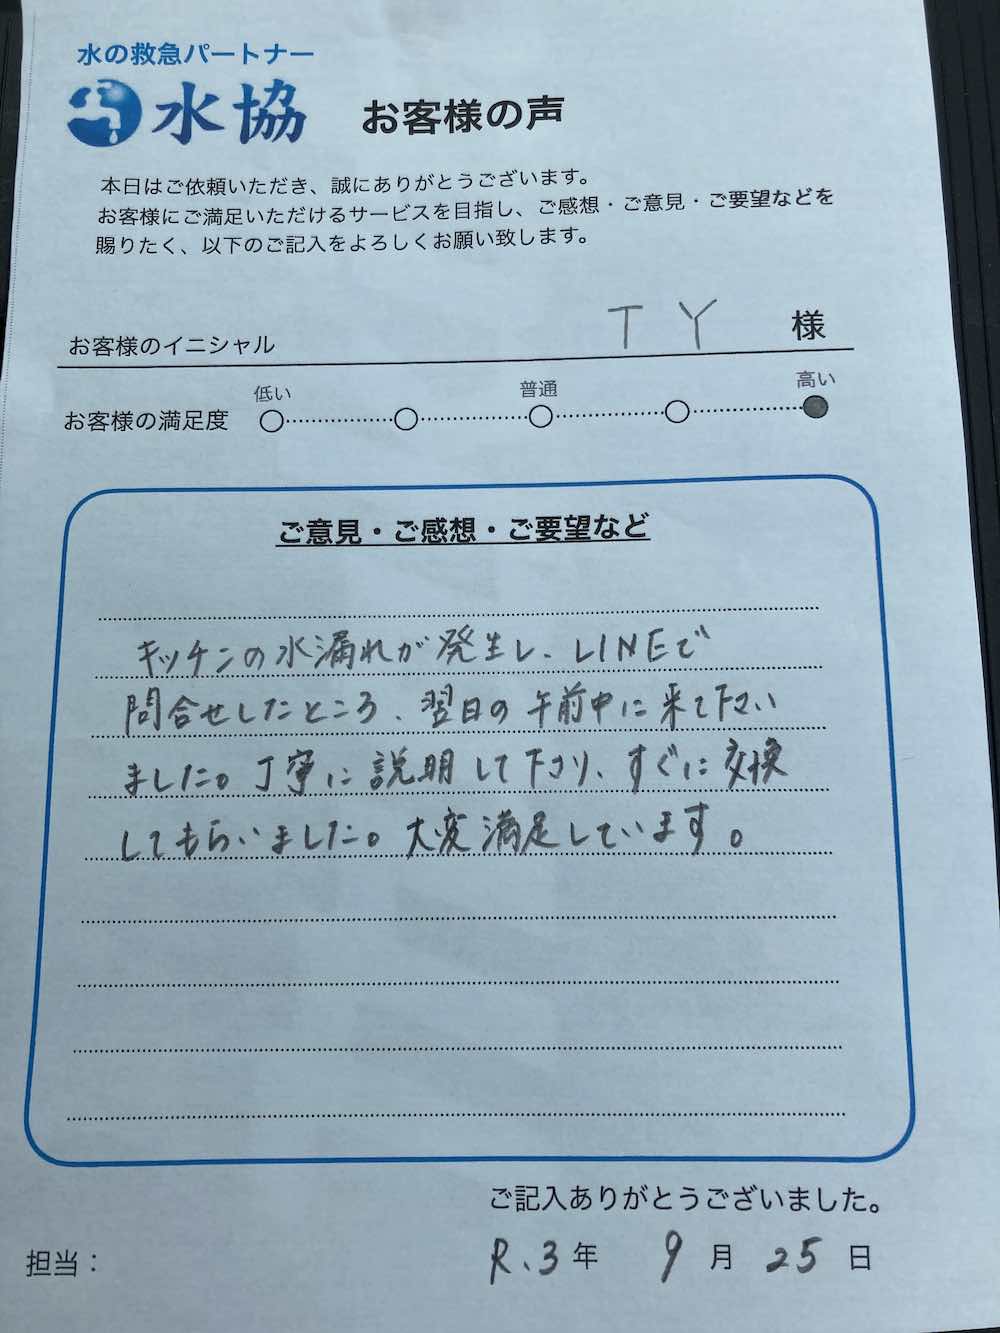 水の救急パートナー
水協 お客様の声
本日はご依頼いただき、誠にありがとうございます。
お客様にご満足いただけるサービスを目指し、ご感想・ご意見・ご要望などを
賜りたく、以下のご記入をよろしくお願い致します。
お客様のイニシャル T Y 様
低い 普通 高い
お客様の満足度
ご意見・ご感想・ご要望など
キッチンの水漏れが発生し、LINEで
問合せしたところ、翌日の午前中に来て下さい
ました。丁寧に説明して下さり、すぐに交換
してもらいました。大変満足しています。
ご記入ありがとうございました。
担当： R.3年 9月 25日